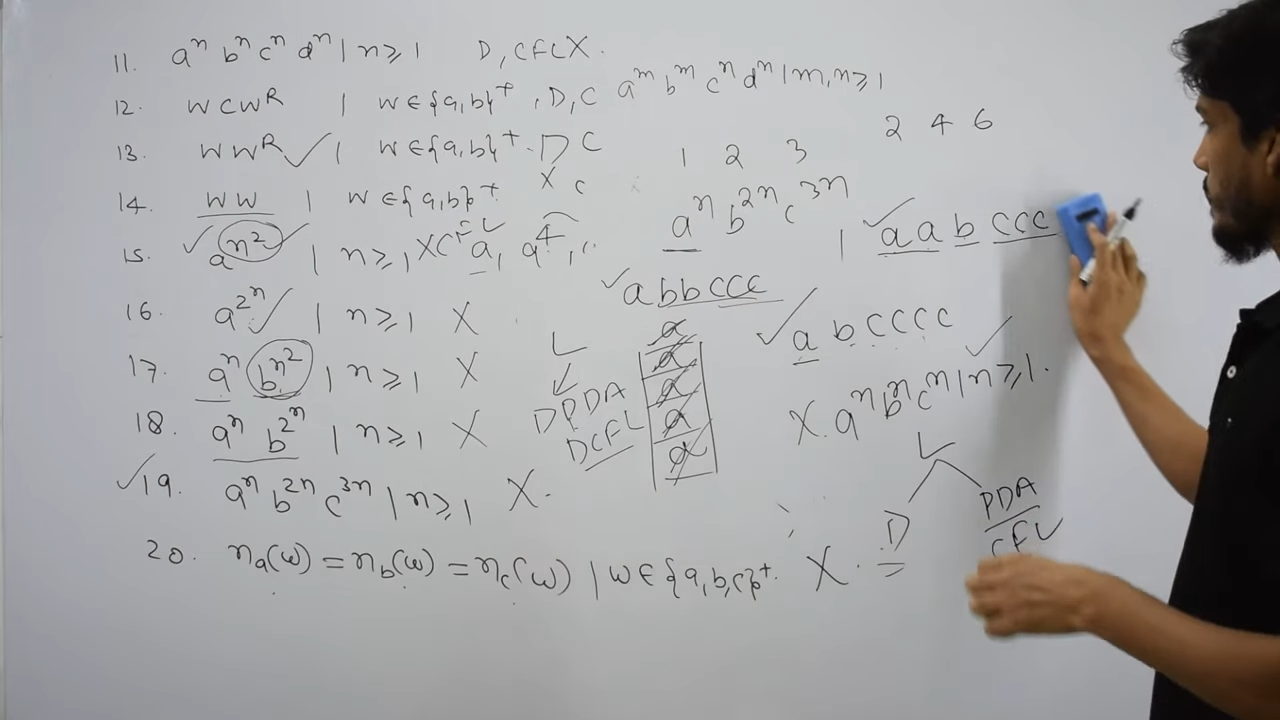 11. aⁿ bⁿ cⁿ dⁿ | n ≥ 1 D, CFL X.
12. w c wᴿ | w ∈ {a, b}⁺, D, C
aᵐ bᵐ cⁿ dⁿ | m, n ≥ 1
13. w wᴿ ✓ | w ∈ {a, b}⁺. D C
14. w w | w ∈ {a, b}⁺ X C
15. ✓ a^(n²) ✓ | n ≥ 1 X CFL a, a⁴, ..
16. a^(2ⁿ) ✓ | n ≥ 1 X
17. aⁿ b^(n²) | n ≥ 1 X
18. aⁿ b^(2ⁿ) | n ≥ 1 X
✓ 19. aⁿ b²ⁿ c³ⁿ | n ≥ 1 X.
20. nₐ(w) = n_b(w) = n_c(w) | w ∈ {a, b, c}⁺. X.
1 2 3
aⁿ b²ⁿ c³ⁿ
✓ a b b c c c
L
DPDA
DCFL
a
a
a
a
a
2 4 6
| ✓ a a b c c c
✓ a b c c c c
X. aⁿ bⁿ cⁿ | n ≥ 1. ✓
L
D
PDA
CFL ✓